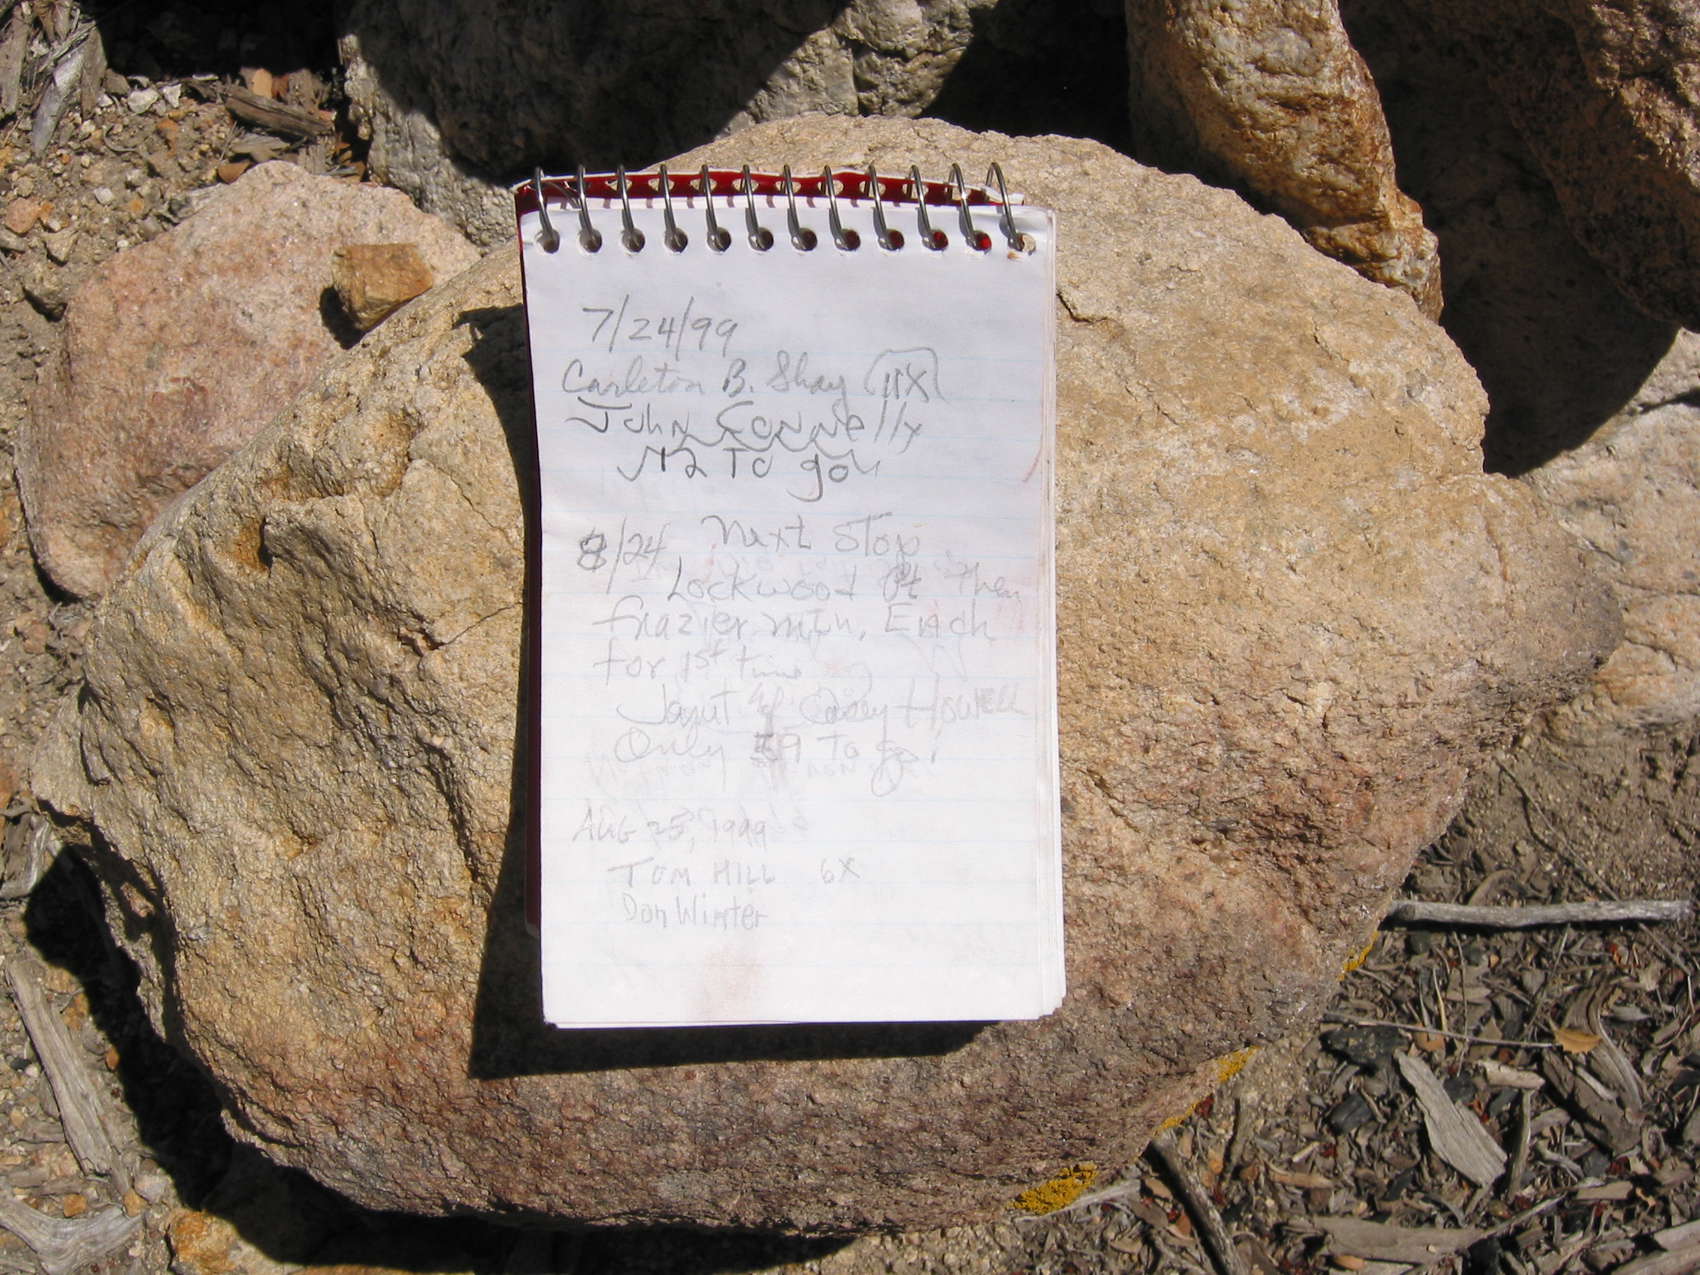 7/24/99
Carleton B. Shay 11X
John Connelly
12 To go
8/24 Next Stop
Lockwood Pt Then
Frazier mtn, Each
for 1st time
Janet & Casey Howell
Only 59 To go!
AUG 25, 1999
TOM HILL 6X
Don Winter